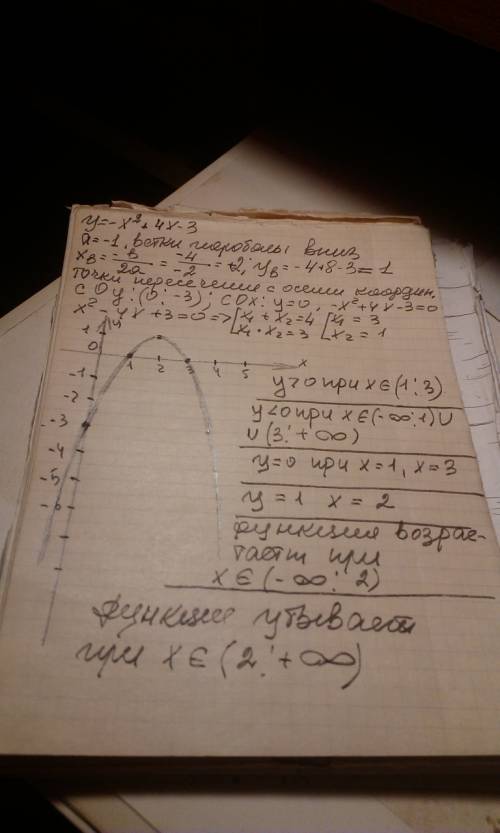 y=-x²+4x-3
a=-1, ветки параболы вниз
xв=-b/2a=-4/-2=2; yв=-4+8-3=1
точки пересечения с осями координ.
с Oy: (0; -3); с OX: y=0, -x²+4x-3=0
x²-4x+3=0=>[x₁+x₂=4 [x₁=3
x₁·x₂=3 x₂=1
y
1
0
x
1 2 3 4 5
-1
-2
-3
-4
-5
-6
y>0 при x∈(1;3)
y<0 при x∈(-∞;1)∪
∪(3;+∞)
y=0 при x=1, x=3
y=1 x=2
функция возрас-
тает при
x∈(-∞;2)
функция убывает
при x∈(2;+∞)